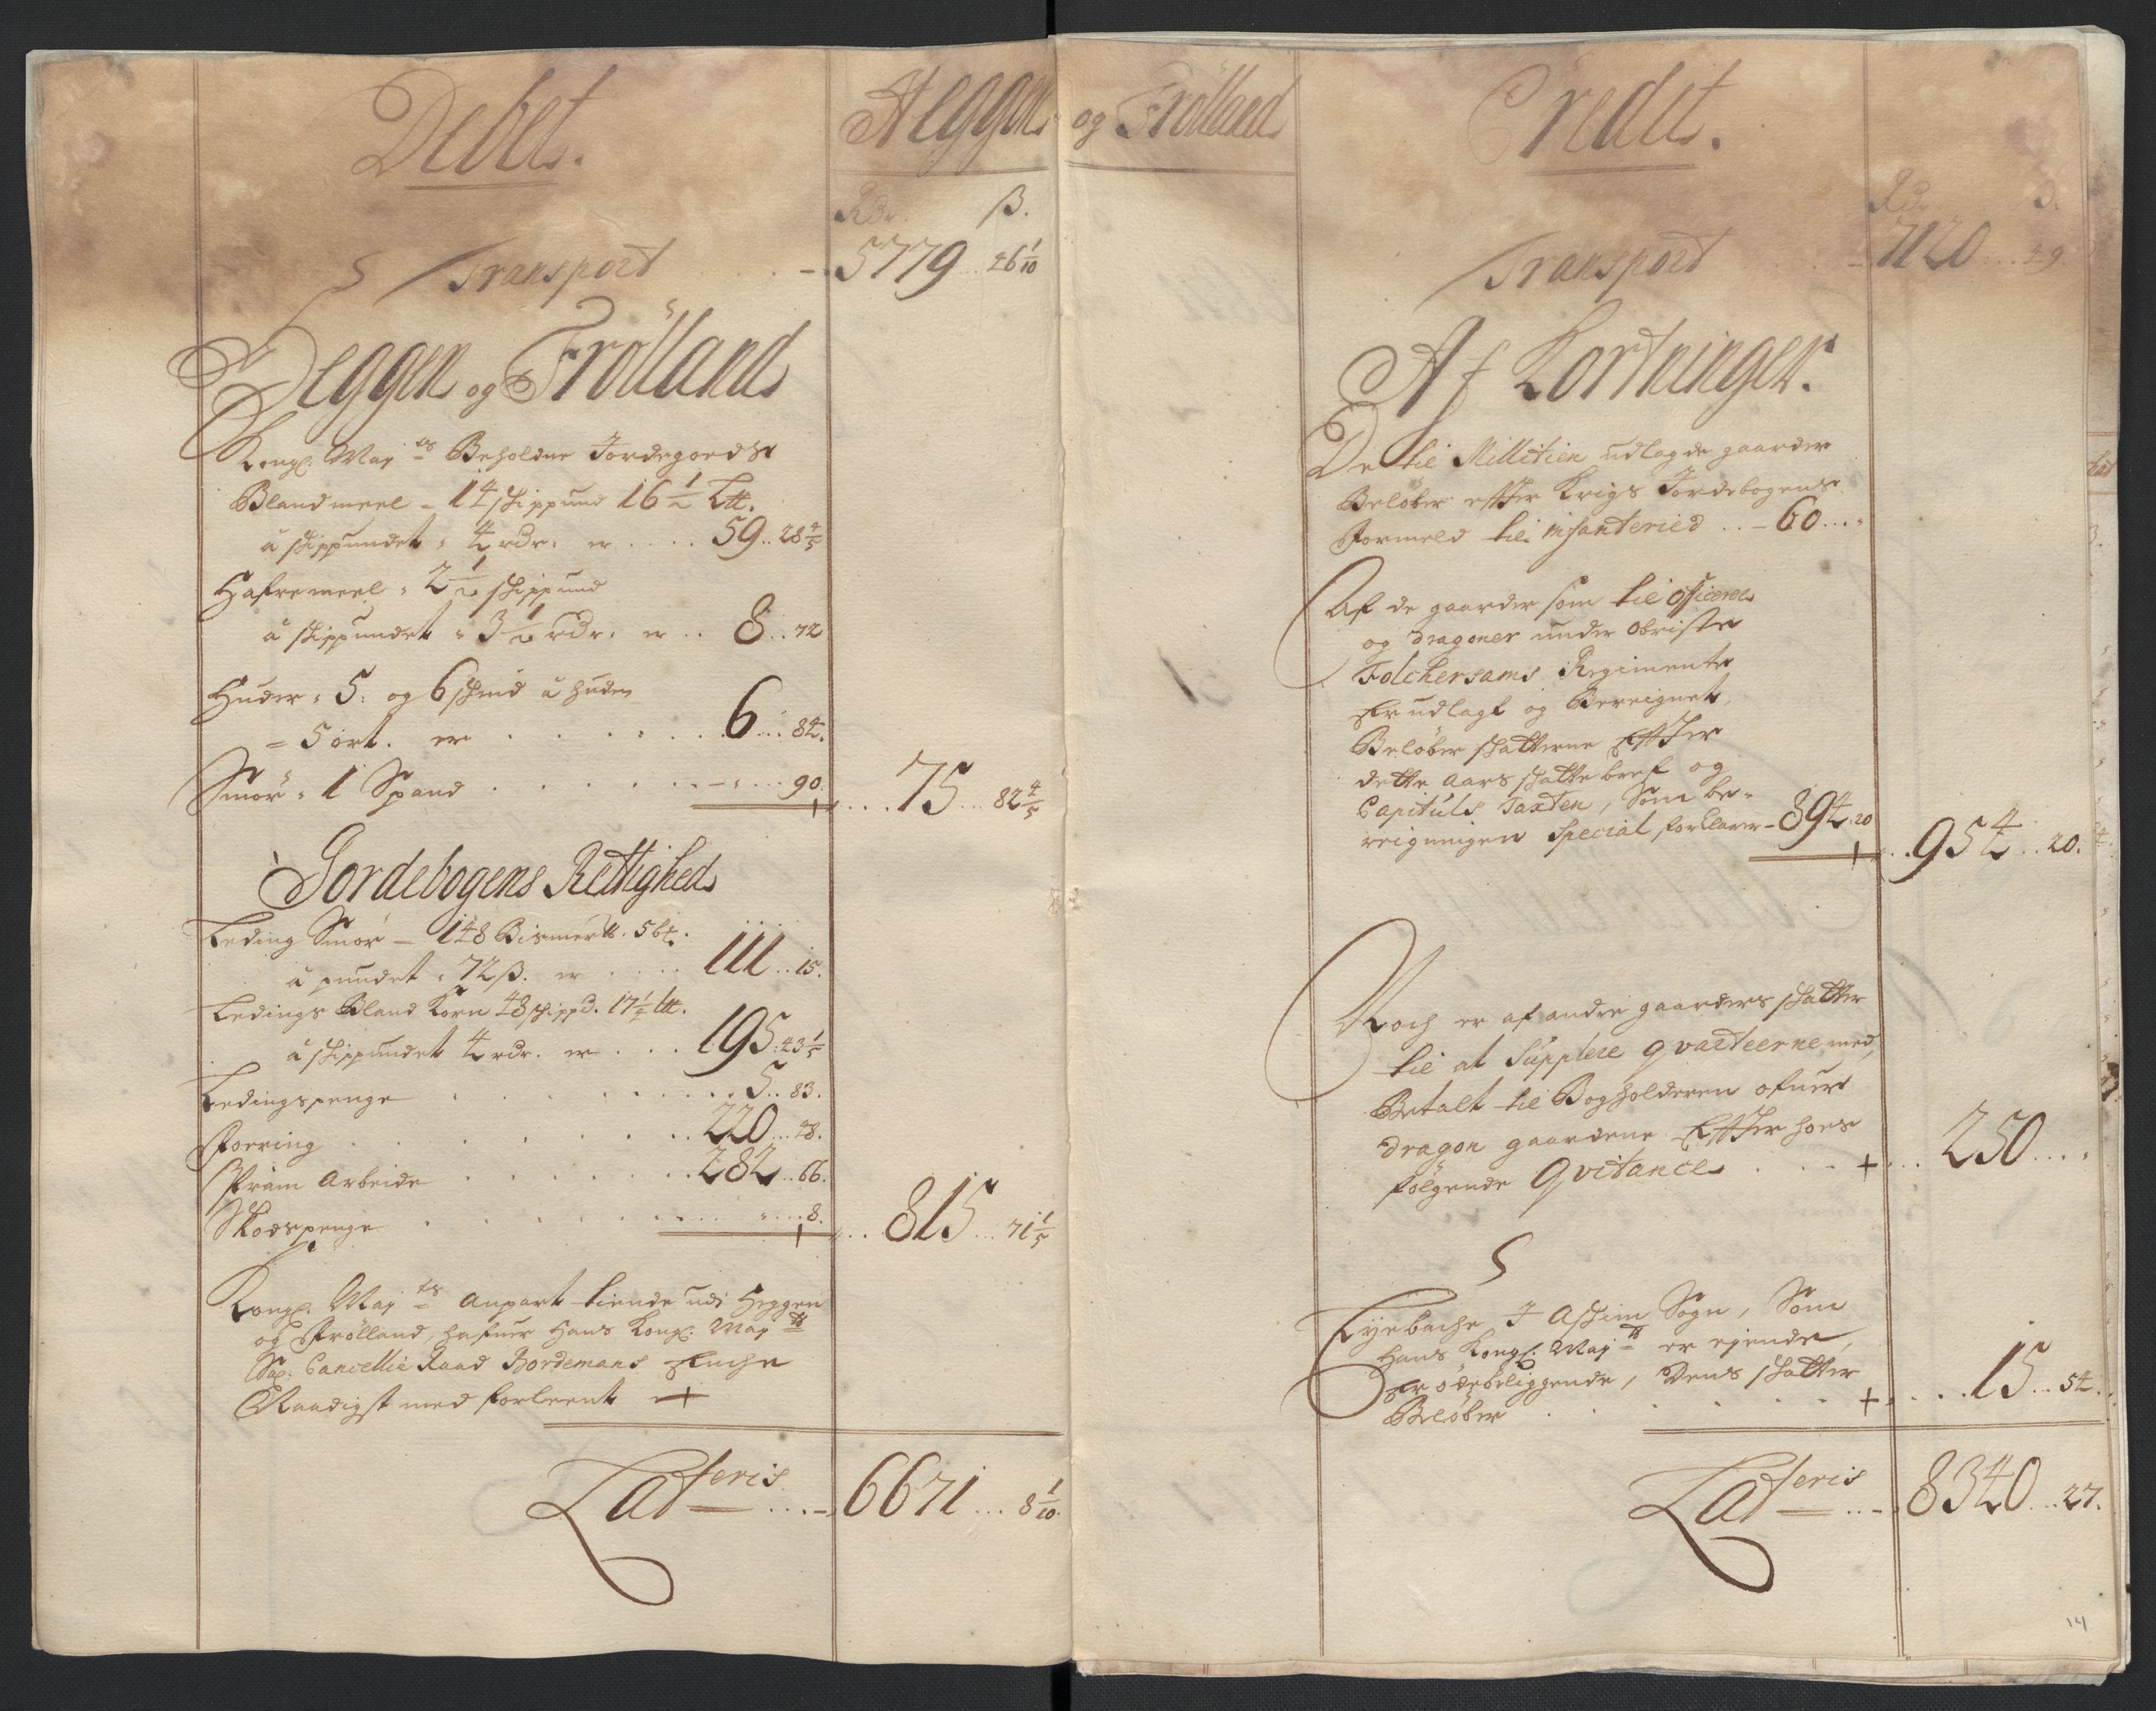 Debet.
Heggen
Rdr. ß.
Transport 5779 .. 46 1/10
Heggen og Frölland
Kongl: May ts Beholdne Jordegoedse
Blandmeel - 14 skippund 16 1/2 Ltt.
à skippundet : 4 rdr. er .... 59 .. 28 4/5
Hafremeel : 2 1/2 skippund
à skippundet : 3 1/2 rdr. er .. 8 .. 72
Huder : 5. og 6 skind à huden
= 5 ort. er ...... 6 ... 84.
Smör : 1 Spand ...... - : ... 90.
75 ... 82 4/5
Jordebogens Rettighed
Leding Smör - 148 Bismertt. 5 bt.
à pundet : 72 ß. er .... 111 .. 15.
Ledings Bland Korn 48 skippd. 17 1/2 ltt.
à skippundet 4 rdr. er ... 195 : 43 1/5
Ledingspenge ...... 5 .. 83.
Foering ...... 220 ... 48.
Pram Arbeide ...... 282 .. 66.
Skodspenge ...... : ... 8.
815 ... 71 1/5
Kongl: May ts Anpart tiende udi Heggen
og Frölland, hafuer Hans Kongl: May tt
Sal: Cancellie Raad Bordemans Enche
Naadigst med forleent
Lateris ... - 6671 ... 8 1/10
og Frölland
Credit.
Rd. ß.
Transport - 7120 ... 49
Af Kortninger.
De til Militien udlagde gaarder
Beløber effter Krigs Jordebogens
Formeld til infanteried .. - 60 ... :
Af de gaarder som til Officerer
og Dragoner under Obriste
Folckersams Regimente
Er udlagt og Bereignet,
Beløber skatterne Effter
dette Aars skattebref og
Capituls Taxten, Som be-
reigningen Special forklarer - 894 . 20
954 .. 20.
Noch er af andre gaarders skatter
til at Supplere qvarteerne med,
Betalt til Bogholderen ofuer
Dragon gaardene Effter hoes
følgende Qvitance ... 250 ... :
Eyebache I Askim Sogn, Som
Hans Kongl: May tt er ejende,
Er ödebeliggende, Dens skatter
Beløber ...... 15 .. 54.
Lateris ... - 8340 ... 27.
14